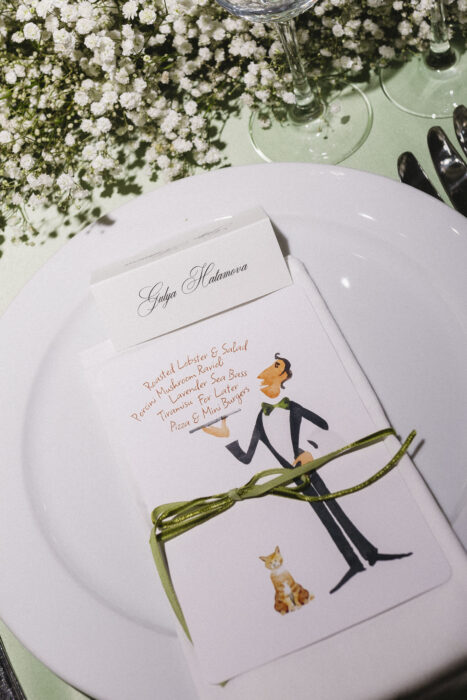 Gulya Hatamova
Roasted Lobster & Salad
Porcini Mushroom Ravioli
Lavender Sea Bass
Tiramisu For Later
Pizza & Mini Burgers